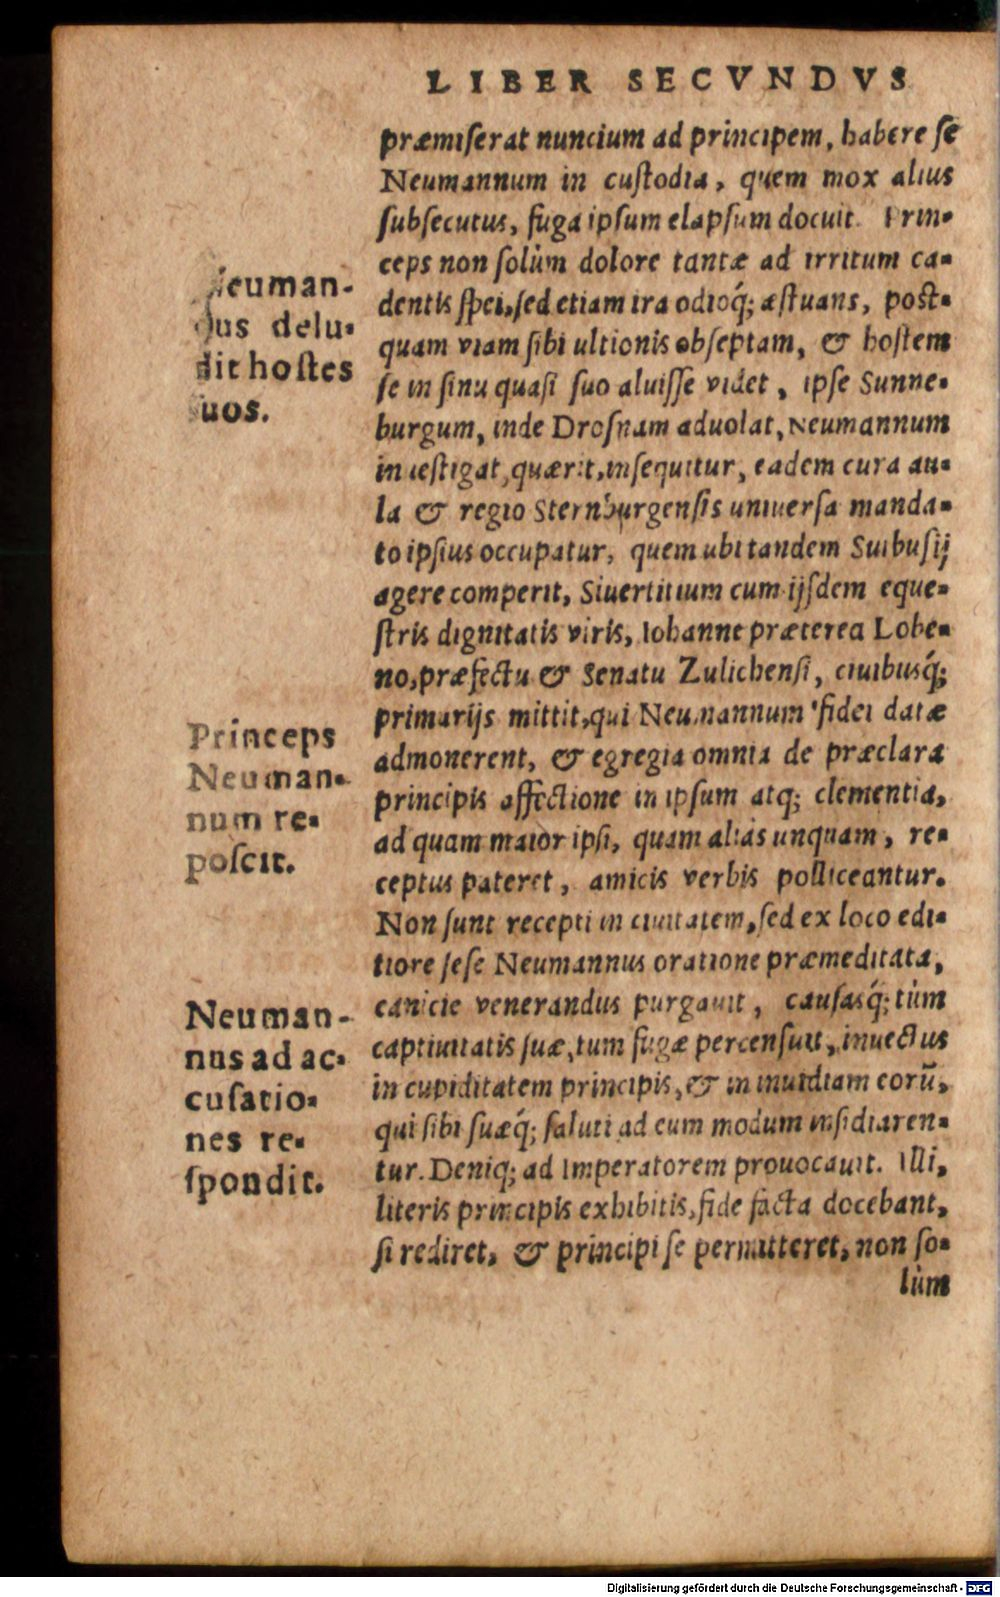 LIBER SECVNDVS
præmiserat nuncium ad principem, habere se
Neumannum in custodia, quem mox alius
subsecutus, fuga ipsum elapsum docuit. Prin-
ceps non solùm dolore tantæ ad irritum ca-
dentis spei, sed etiam ira odioq́; æstuans, post-
quam viam sibi ultionis obseptam, & hostem
se in sinu quasi suo aluisse videt, ipse Sunne-
burgum, inde Drosnam aduolat, Neumannum
inuestigat, quærit, insequitur, eadem cura au-
la & regio Sternburgensis uniuersa manda-
to ipsius occupatur, quem ubi tandem Suibusij
agere comperit, Siuertitium cum ijsdem eque-
stris dignitatis viris, Iohanne præterea Lobe-
no, præfectu & Senatu Zulichensi, ciuibusq́;
primarijs mittit, qui Neumannum fidei datæ
admonerent, & egregia omnia de præclara
principis affectione in ipsum atq; clementia,
ad quam maior ipsi, quam aliàs unquam, re-
ceptus pateret, amicis verbis polliceantur.
Non sunt recepti in ciuitatem, sed ex loco edi-
tiore sese Neumannus oratione præmeditata,
canicie venerandus purgauit, causasq́; tùm
captiuitatis suæ, tum fugæ percensuit, inuectus
in cupiditatem principis, & in inuidiam eorũ,
qui sibi suæq́; saluti ad eum modum insidiaren-
tur. Deniq; ad Imperatorem prouocauit. Illi,
literis principis exhibitis, fide facta docebant,
si rediret, & principi se permitteret, non so-
lùm
Neuman-
nus delu-
dit hostes
suos.
Princeps
Neuman-
num re-
poscit.
Neuman-
nus ad ac-
cusatio-
nes re-
spondit.
Digitalisierung gefördert durch die Deutsche Forschungsgemeinschaft - DFG